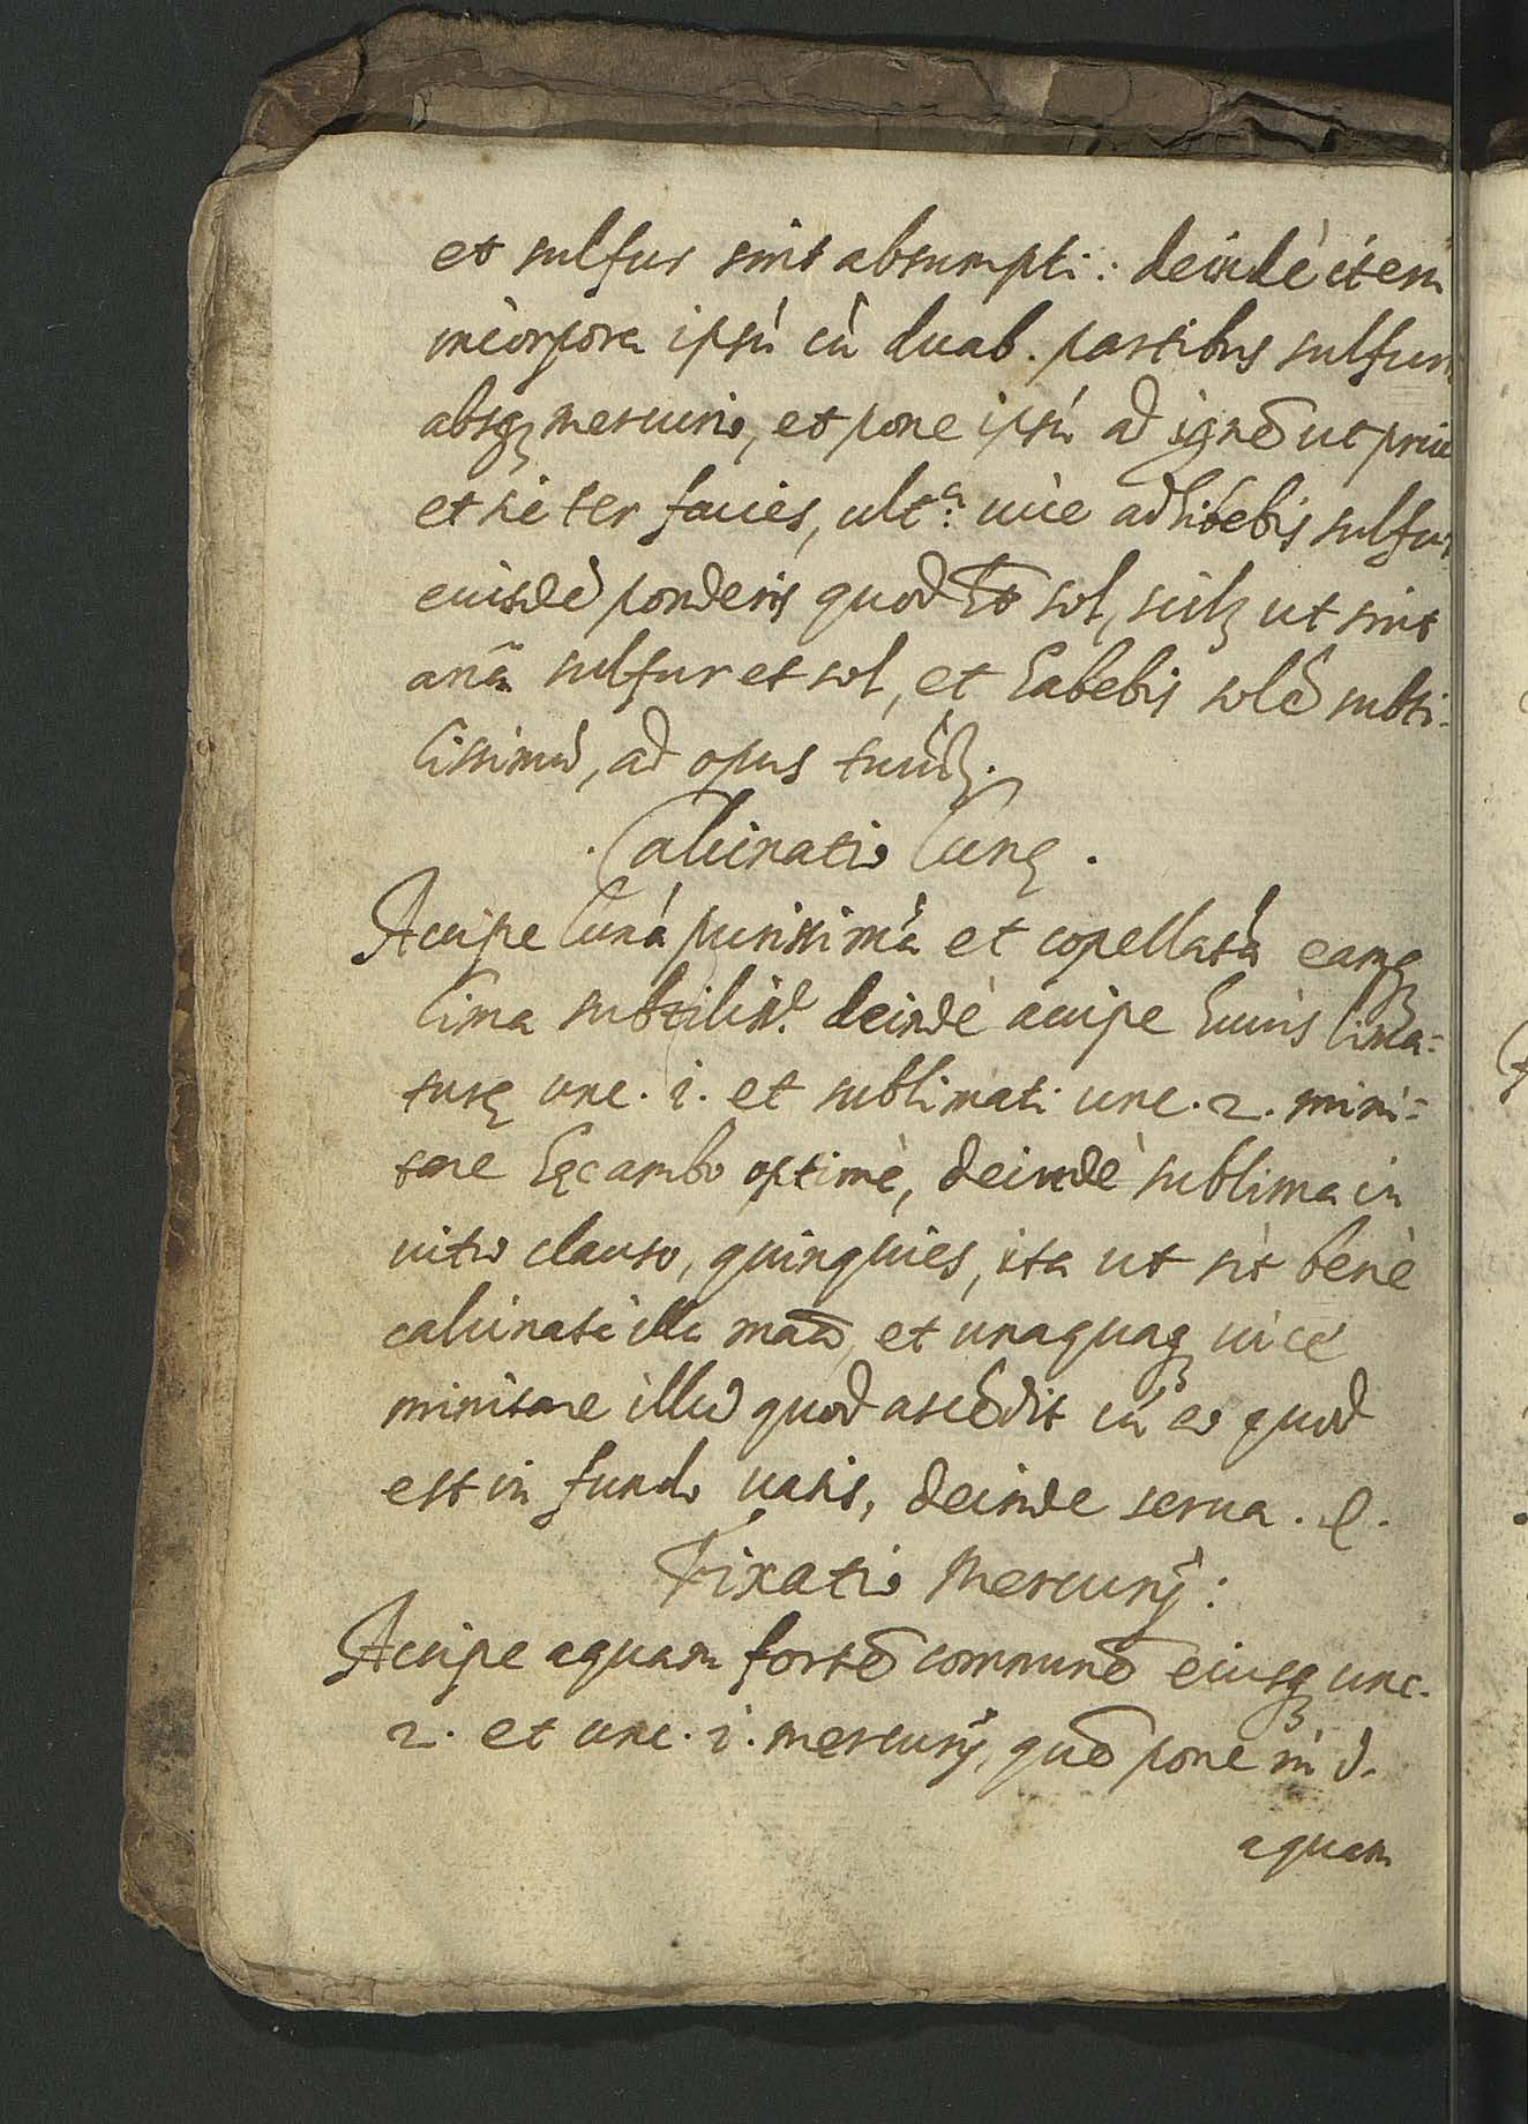 et sulfur sint absumpti: deindè item
incorpora ipsū cū duab. partibus sulfuri
absq; mercurio, et pone ipsū ad ignē ut priu
et sic ter facies, ultª: uice adhibebis sulfur
eiusdē ponderis quod sol, scilz ut sint
anā sulfur et sol, et habebis solē subti-
lissimū, ad opus tuū.
. Calcinatio lunę .
Accipe lunā purissimā et copellatā eamq;
lima subtilit. deindè accipe huius lima=
turę unc. i. et sublimati unc. 2. mini=
stre hęc ambo optimè, deindè sublima in
uitro clauso, quinquies, ita ut sit benè
calcinata illa maā, et unaquaq; uice
miniscare illud quod ascēdit cū eo quod
est in fundo uasis, deinde serua.
Fixatio Mercurij:
Accipe aquam fortē communē eiusq; unc.
2. et unc. i. mercurij, quē pone in d.
aquam